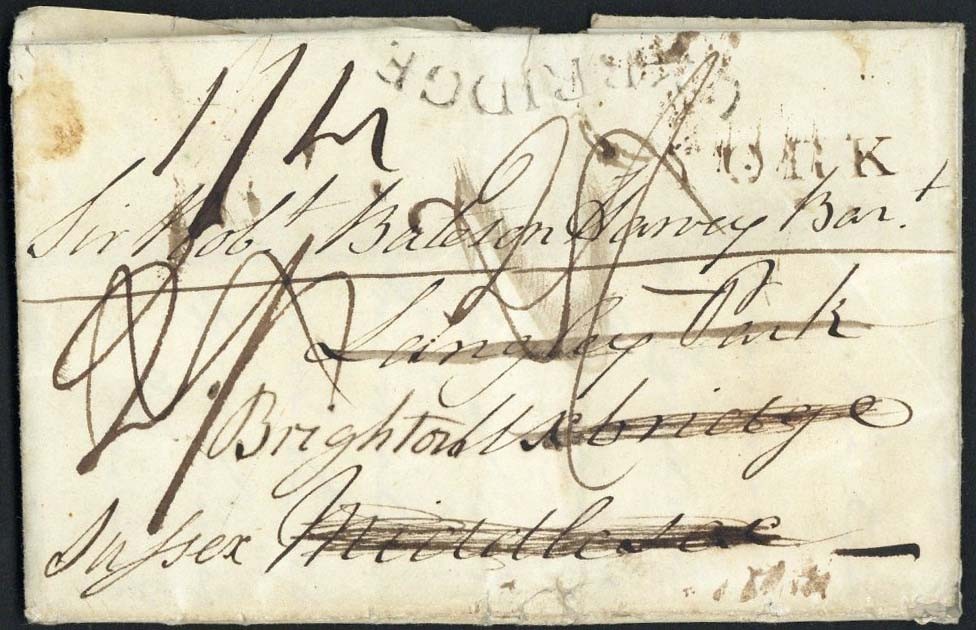 BRIDGE
ORK
1/4
Sir Robt Bateson Harvey Bart
Langley Park
Brighton Uxbridge
Sussex Middlesex